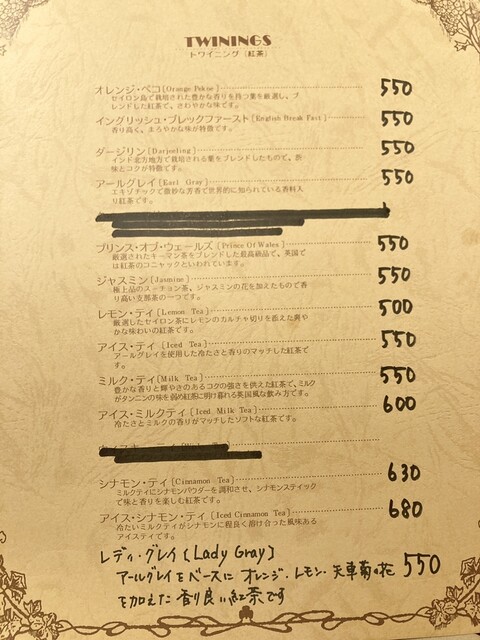 TWININGS
トワイニング〔紅茶〕
オレンジ・ペコ〔Orange Pekoe〕 550
セイロン島で栽培された豊かな香りを持つ葉を厳選し、ブ
レンドした紅茶で、さわやかな味です。
イングリッシュ・ブレックファースト〔English Break Fast〕 550
香り高く、まろやかな味が特徴です。
ダージリン〔Darjeeling〕 550
インド北方地方で栽培される葉をブレンドしたもので、
味とコクが特徴です。
アールグレイ〔Earl Gray〕 550
エキゾチックで微妙な芳香で世界的に知られている香料入
り紅茶です。
プリンス・オブ・ウェールズ〔Prince Of Wales〕 550
厳選されたキーマン茶をブレンドした最高級品で、英国で
は紅茶のコニャックといわれています。
ジャスミン〔Jasmine〕 550
極上品のスーチョン茶、ジャスミンの花を加えたもので香
り高い支那茶の一つです。
レモン・ティ〔Lemon Tea〕 500
厳選したセイロン茶にレモンのカルチャ切りを添えた爽や
かな味わいの紅茶です。
アイス・ティ〔Iced Tea〕 550
アールグレイを使用した冷たさと香りのマッチした紅茶で
す。
ミルク・ティ〔Milk Tea〕 550
豊かな香りと輝やきのあるコクの強さを供えた紅茶で、ミルク
がタンニンの味を弱め紅茶に明け暮れる英国風な飲み方です。
アイス・ミルクティ〔Iced Milk Tea〕 600
冷たさとミルクの香りがマッチしたソフトな紅茶です。
シナモン・ティ〔Cinnamon Tea〕 630
ミルクティにシナモンパウダーを調和させ、シナモンスティック
で味と香りを楽しむ紅茶です。
アイス・シナモン・ティ〔Iced Cinnamon Tea〕 680
冷たいミルクティがシナモンに程良く溶け合った風味ある
アイスティです。
レディ・グレイ〔Lady Gray〕
アールグレイをベースに オレンジ・レモン・矢車菊の花 550
を加えた 香り良い紅茶です